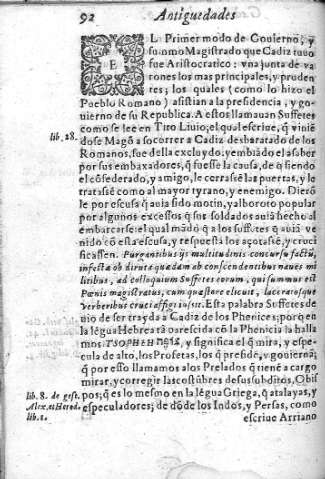 92 Antiguedades
EL Primer modo de Gouierno, y
sumo Magistrado que Cadiz tuuo
fue Aristocratico: vna junta de va
rones los mas principales, y pruden
tes; los quales (como lo hizo el
Pueblo Romano) assistian a la presidencia, y go-
uierno de su Republica. A estos llamauan Suffetes
como se lee en Tito Liuio; el qual escriue, q̃ vinié
lib. 28. dose Magõ a socorrer a Cadiz desbaratado de los
Romanos, fue della excluydo: y embiado el a saber
por sus embaxadores, q̃ fuesse la causa, de q̃ siendo
el cõfederado, y amigo, le cerrasé las puertas, y le
tratasé como al mayor tyrano, y enemigo. Dierõ
le por escusa q̃ auia sido motin, y alboroto popular
por algunos excessos q̃ sus soldados auiã hecho al
embarcarse: el qual mãdò q̃ a los suffetes q̃ auiã ve
nido cõ esta escusa, y respuesta los açotasé, y cruci
ficassen. Purgantibus ijs multitudinis concursu factũ,
infesta ob direpta quædam ab conscendentibus naues mi
litibus, ad colloquium Suffetes eorum, qui summus est
Pœnis magistratus, cum quæstore elicuit, laceratosque
verberibus cruci affigi iussit. Esta palabra Suffetes de
uio de ser trayda a Cadiz de los Phenices; porq̃ en
la légua Hebrea tã parescida cõ la Phenicia la halla
mos. TSOPHEH, y significa el q̃ mira, y espe-
cula de alto, los Profetas, los q̃ preside, y gouierna;
q̃ por esso llamamos a los Prelados q̃ tiené a cargo
mirar, y corregir las costũbres de sus subditos, Obis
lib. 8. de gest. pos; q̃ es lo mesmo en la légua Griega, q̃ atalayas, y
Alex. especuladores; de dõde los Indos, y Persas, como
lib. 1. escriue Arriano